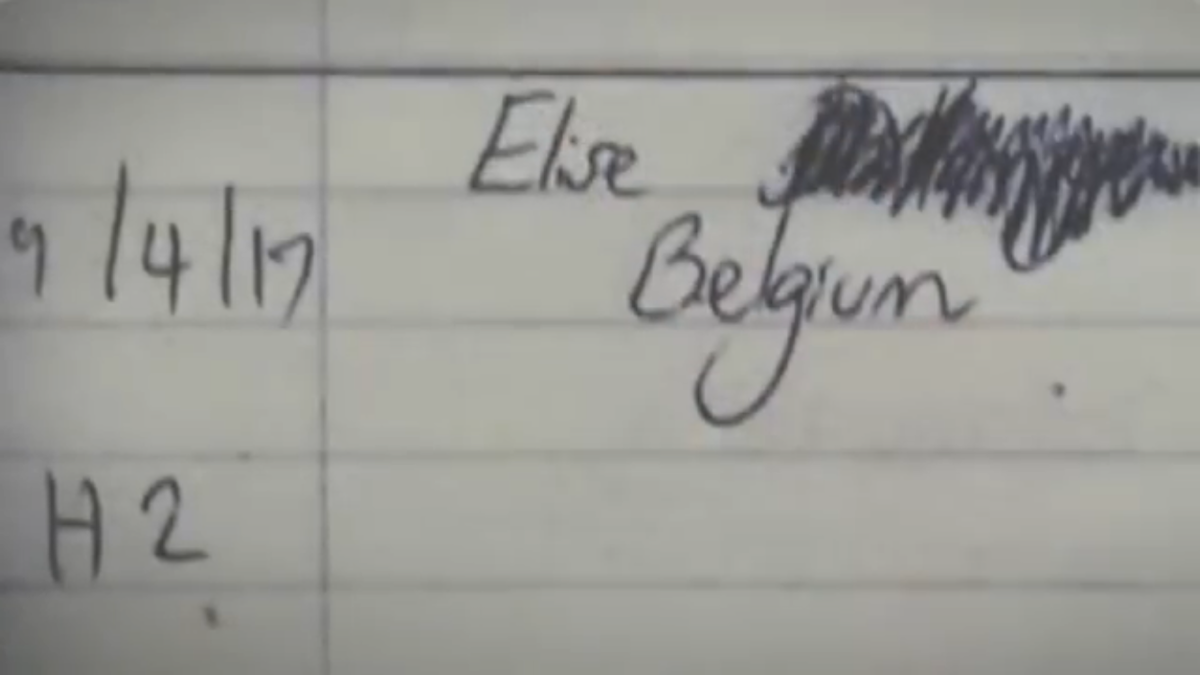 Elise
9/4/17 Belgium
H2